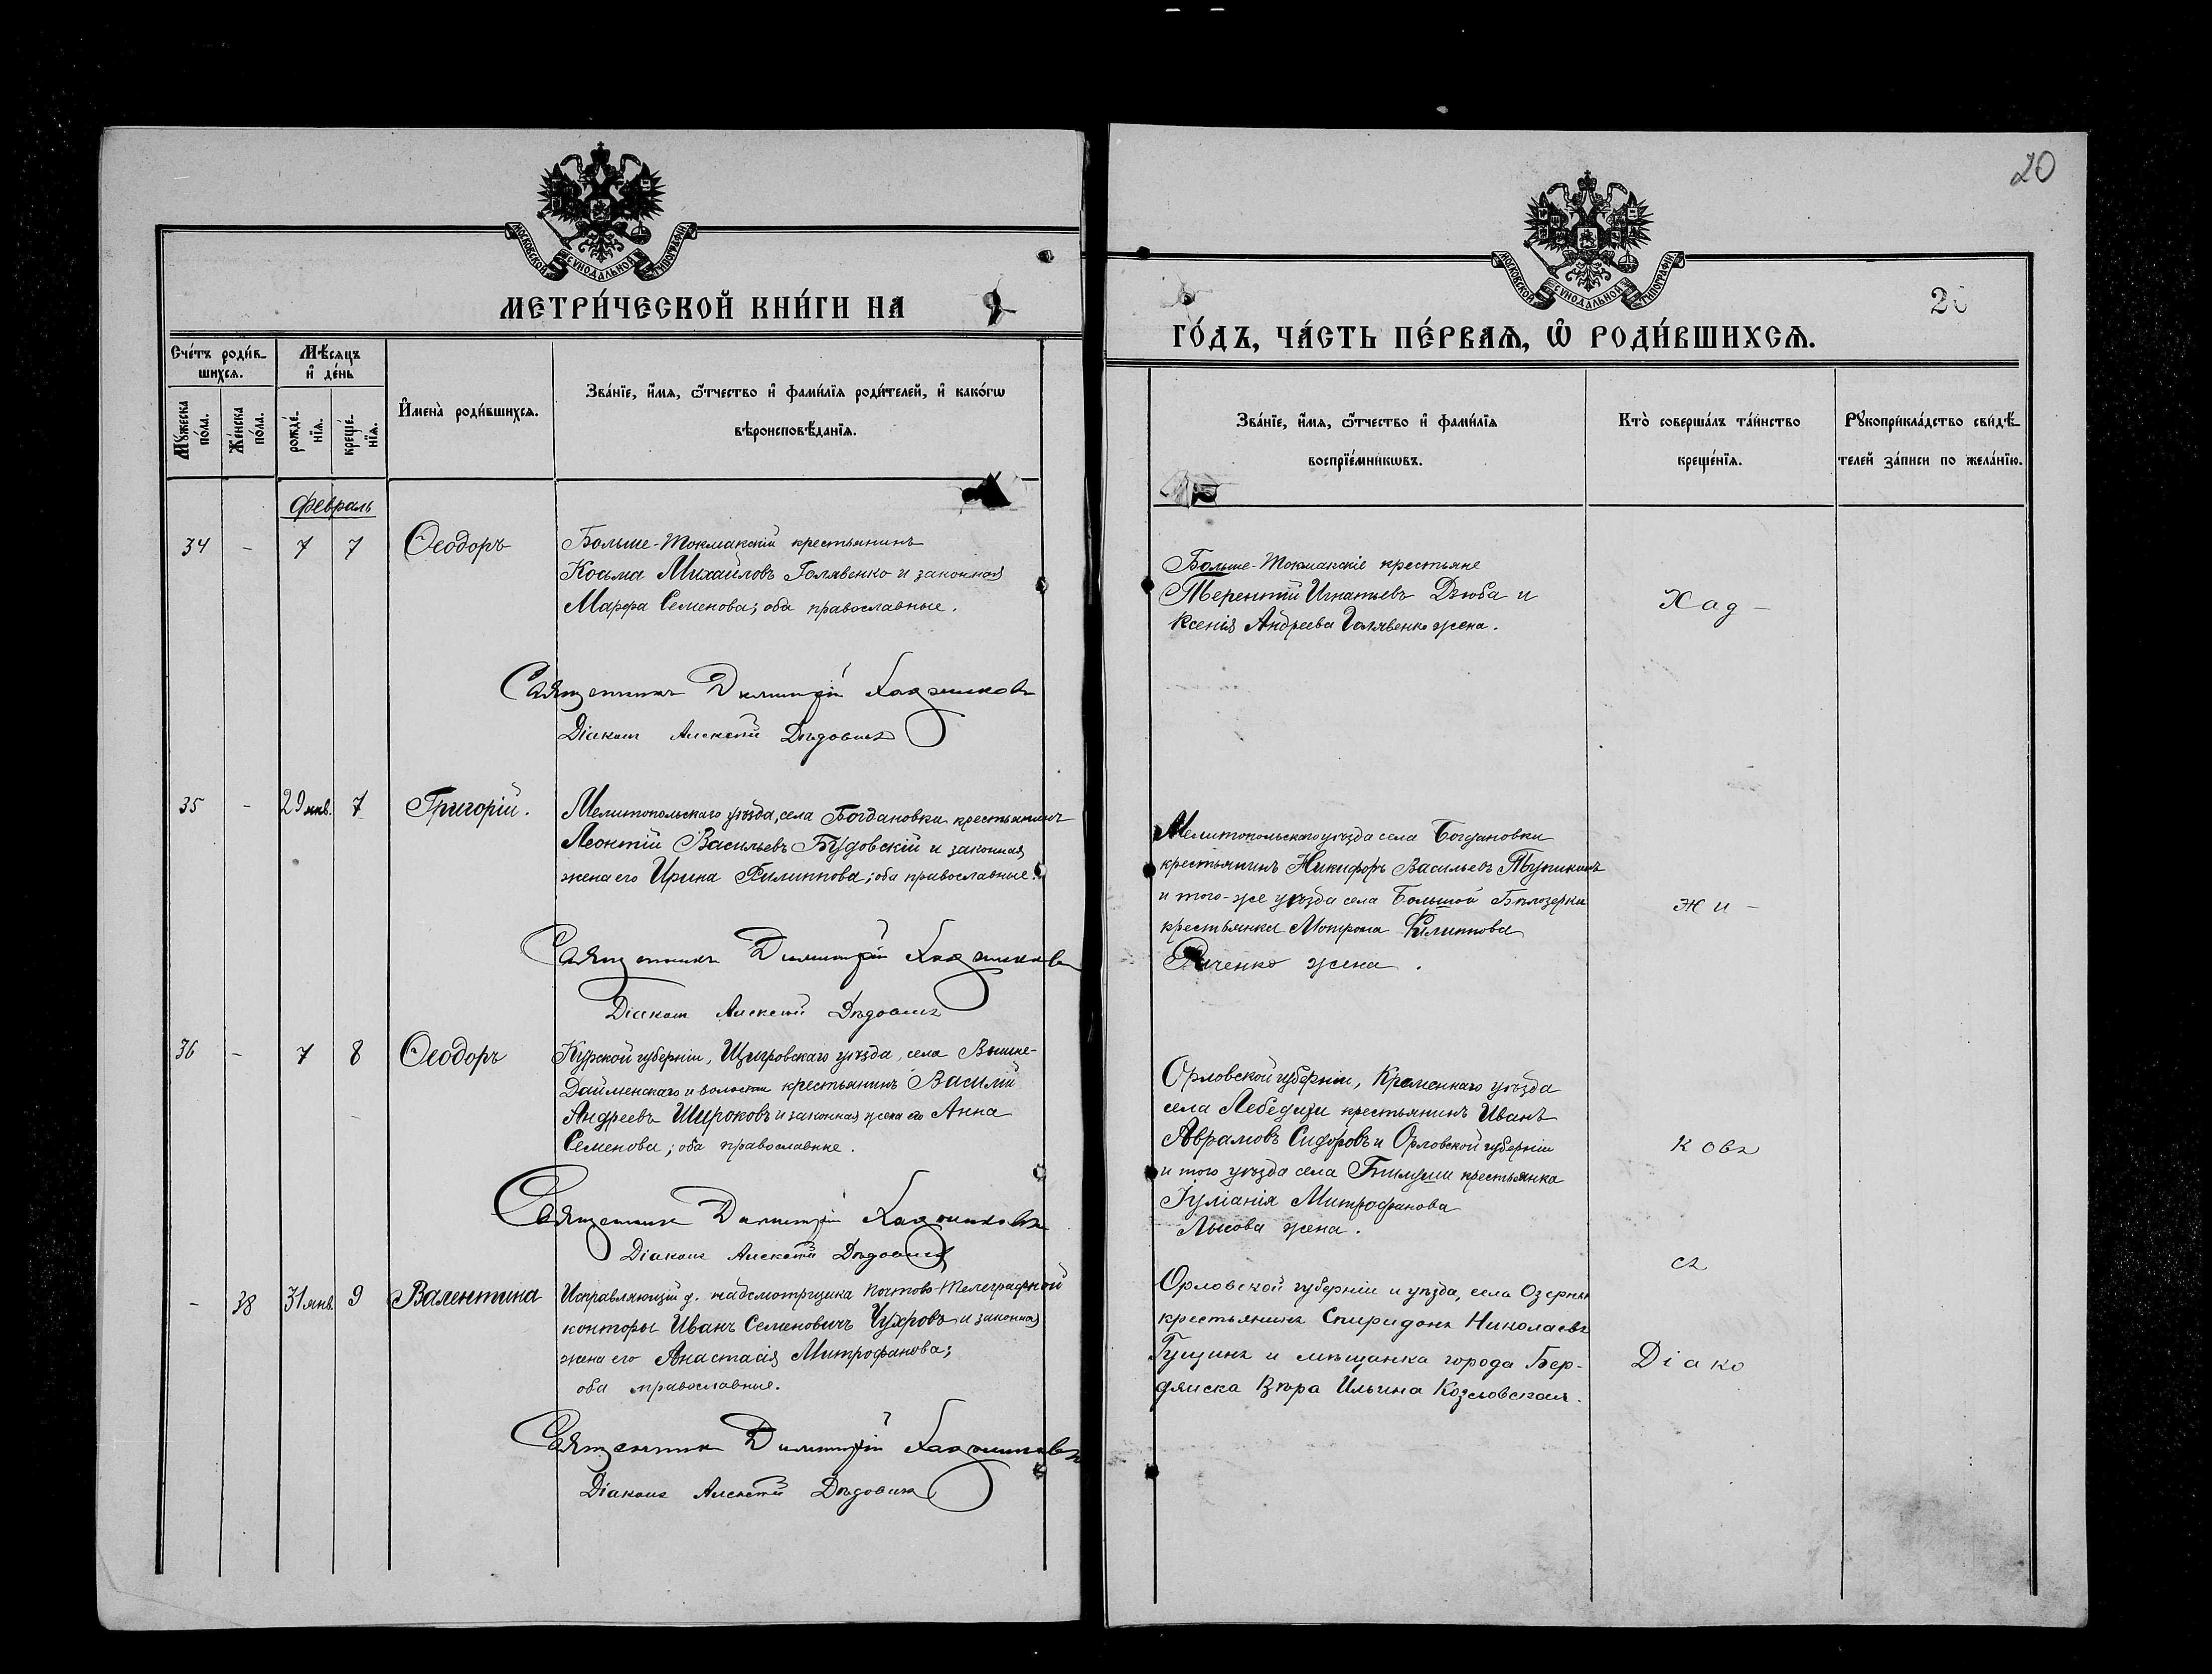 МОСКОВСКОЙ СѴНОДАЛЬНОЙ ТИПОГРАФІИ
МЕТРИ́ЧЕСКОЙ КНИ́ГИ НА
Сче́тъ роди́в-
шихся.
Мѣ́сяцъ
и҆ де́нь
Мꙋ́жеска
по́ла.
Же́нска
по́ла.
рожде́-
нїя.
креще́-
нїя.
И҆мена̀ роди́вшихся.
Зва́нїе, и҆́мя, ѻ҆́тчество и҆ фами́лїя роди́телей, и҆ како́гѡ
вѣроисповѣ́данїя.
Февраль
34 - 7 7 Ѳеодоръ
Больше-Токмакскій крестьянинъ
Косьма Михайловъ Голявенко и законная
Марфа Семенова; оба православные.
Священникъ Димитрій Хаджиковъ
Діаконъ Алексѣй Дѣдовичъ
35 - 29 янв. 7 Григорій.
Мелитопольскаго уѣзда, села Богдановки крестьянинъ
Леонтій Васильевъ Будовскій и законная
жена его Ирина Филиппова; оба православные.
Священникъ Димитрій Хаджиковъ
Діаконъ Алексѣй Дѣдовичъ
36 - 7 8 Ѳеодоръ
Курской губерніи, Щигровскаго уѣзда, села Вышне-
Дайменскаго и волости крестьянинъ Василій
Андреевъ Широковъ и законная жена его Анна
Семенова; оба православные.
Священникъ Димитрій Хаджиковъ
Діаконъ Алексѣй Дѣдовичъ
- 38 31 янв. 9 Валентина
Исправляющій д. надсмотрщика Почтово-Телеграфной
конторы Иванъ Семеновичъ Чухровъ и законная
жена его Анастасія Митрофанова;
оба православные.
Священникъ Димитрій Хаджиковъ
Діаконъ Алексѣй Дѣдовичъ
20
МОСКОВСКОЙ СѴНОДАЛЬНОЙ ТИПОГРАФІИ
ГО́ДЪ, ЧА́СТЬ ПЕ́РВАЯ, Ѽ РОДИ́ВШИХСЯ.
Зва́нїе, и҆́мя, ѻ҆́тчество и҆ фами́лїя
воспрїе́мникѡвъ.
Кто̀ соверша́лъ та́инство
креще́нїя.
Рꙋкоприкла́дство свидѣ́-
телей за́писи по жела́нїю.
Больше-Токмакскіе крестьяне
Терентій Игнатьевъ Дзюба и
Ксенія Андреева Голявенко жена.
Хад-
Мелитопольскаго уѣзда села Богдановки
крестьянинъ Никифоръ Васильевъ Тупикинъ
и того-же уѣзда села Большой Бѣлозерки
крестьянка Мотрона Филиппова
жена.
жи-
Орловской губерніи, уѣзда
села крестьянинъ Иванъ
Аврамовъ Сидоровъ и Орловской губерніи
и того уѣзда села крестьянка
Іуліанія Митрофанова
Лысова жена.
ковъ
съ
Орловской губерніи и уѣзда, села Озерны
крестьянинъ Спиридонъ Николаевъ
Гущинъ и мѣщанка города Бер-
дянска Вѣра Ильина Козловская.
Діако